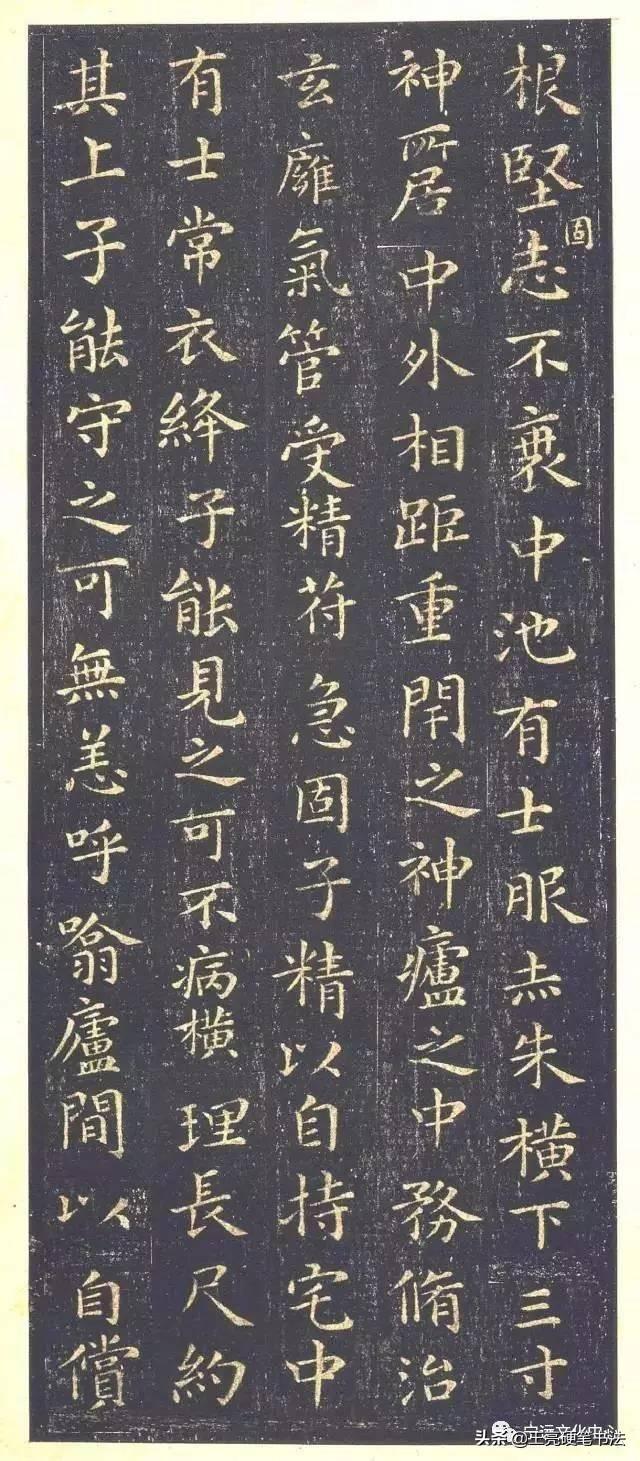 根堅固志不衰中池有士服赤朱橫下三寸
神所居中外相距重閇之神廬之中務脩治
玄廱氣管受精苻急固子精以自持宅中
有士常衣絳子能見之可不病橫理長尺約
其上子能守之可無恙呼噏廬間以自償
头条@王亮硬笔书法